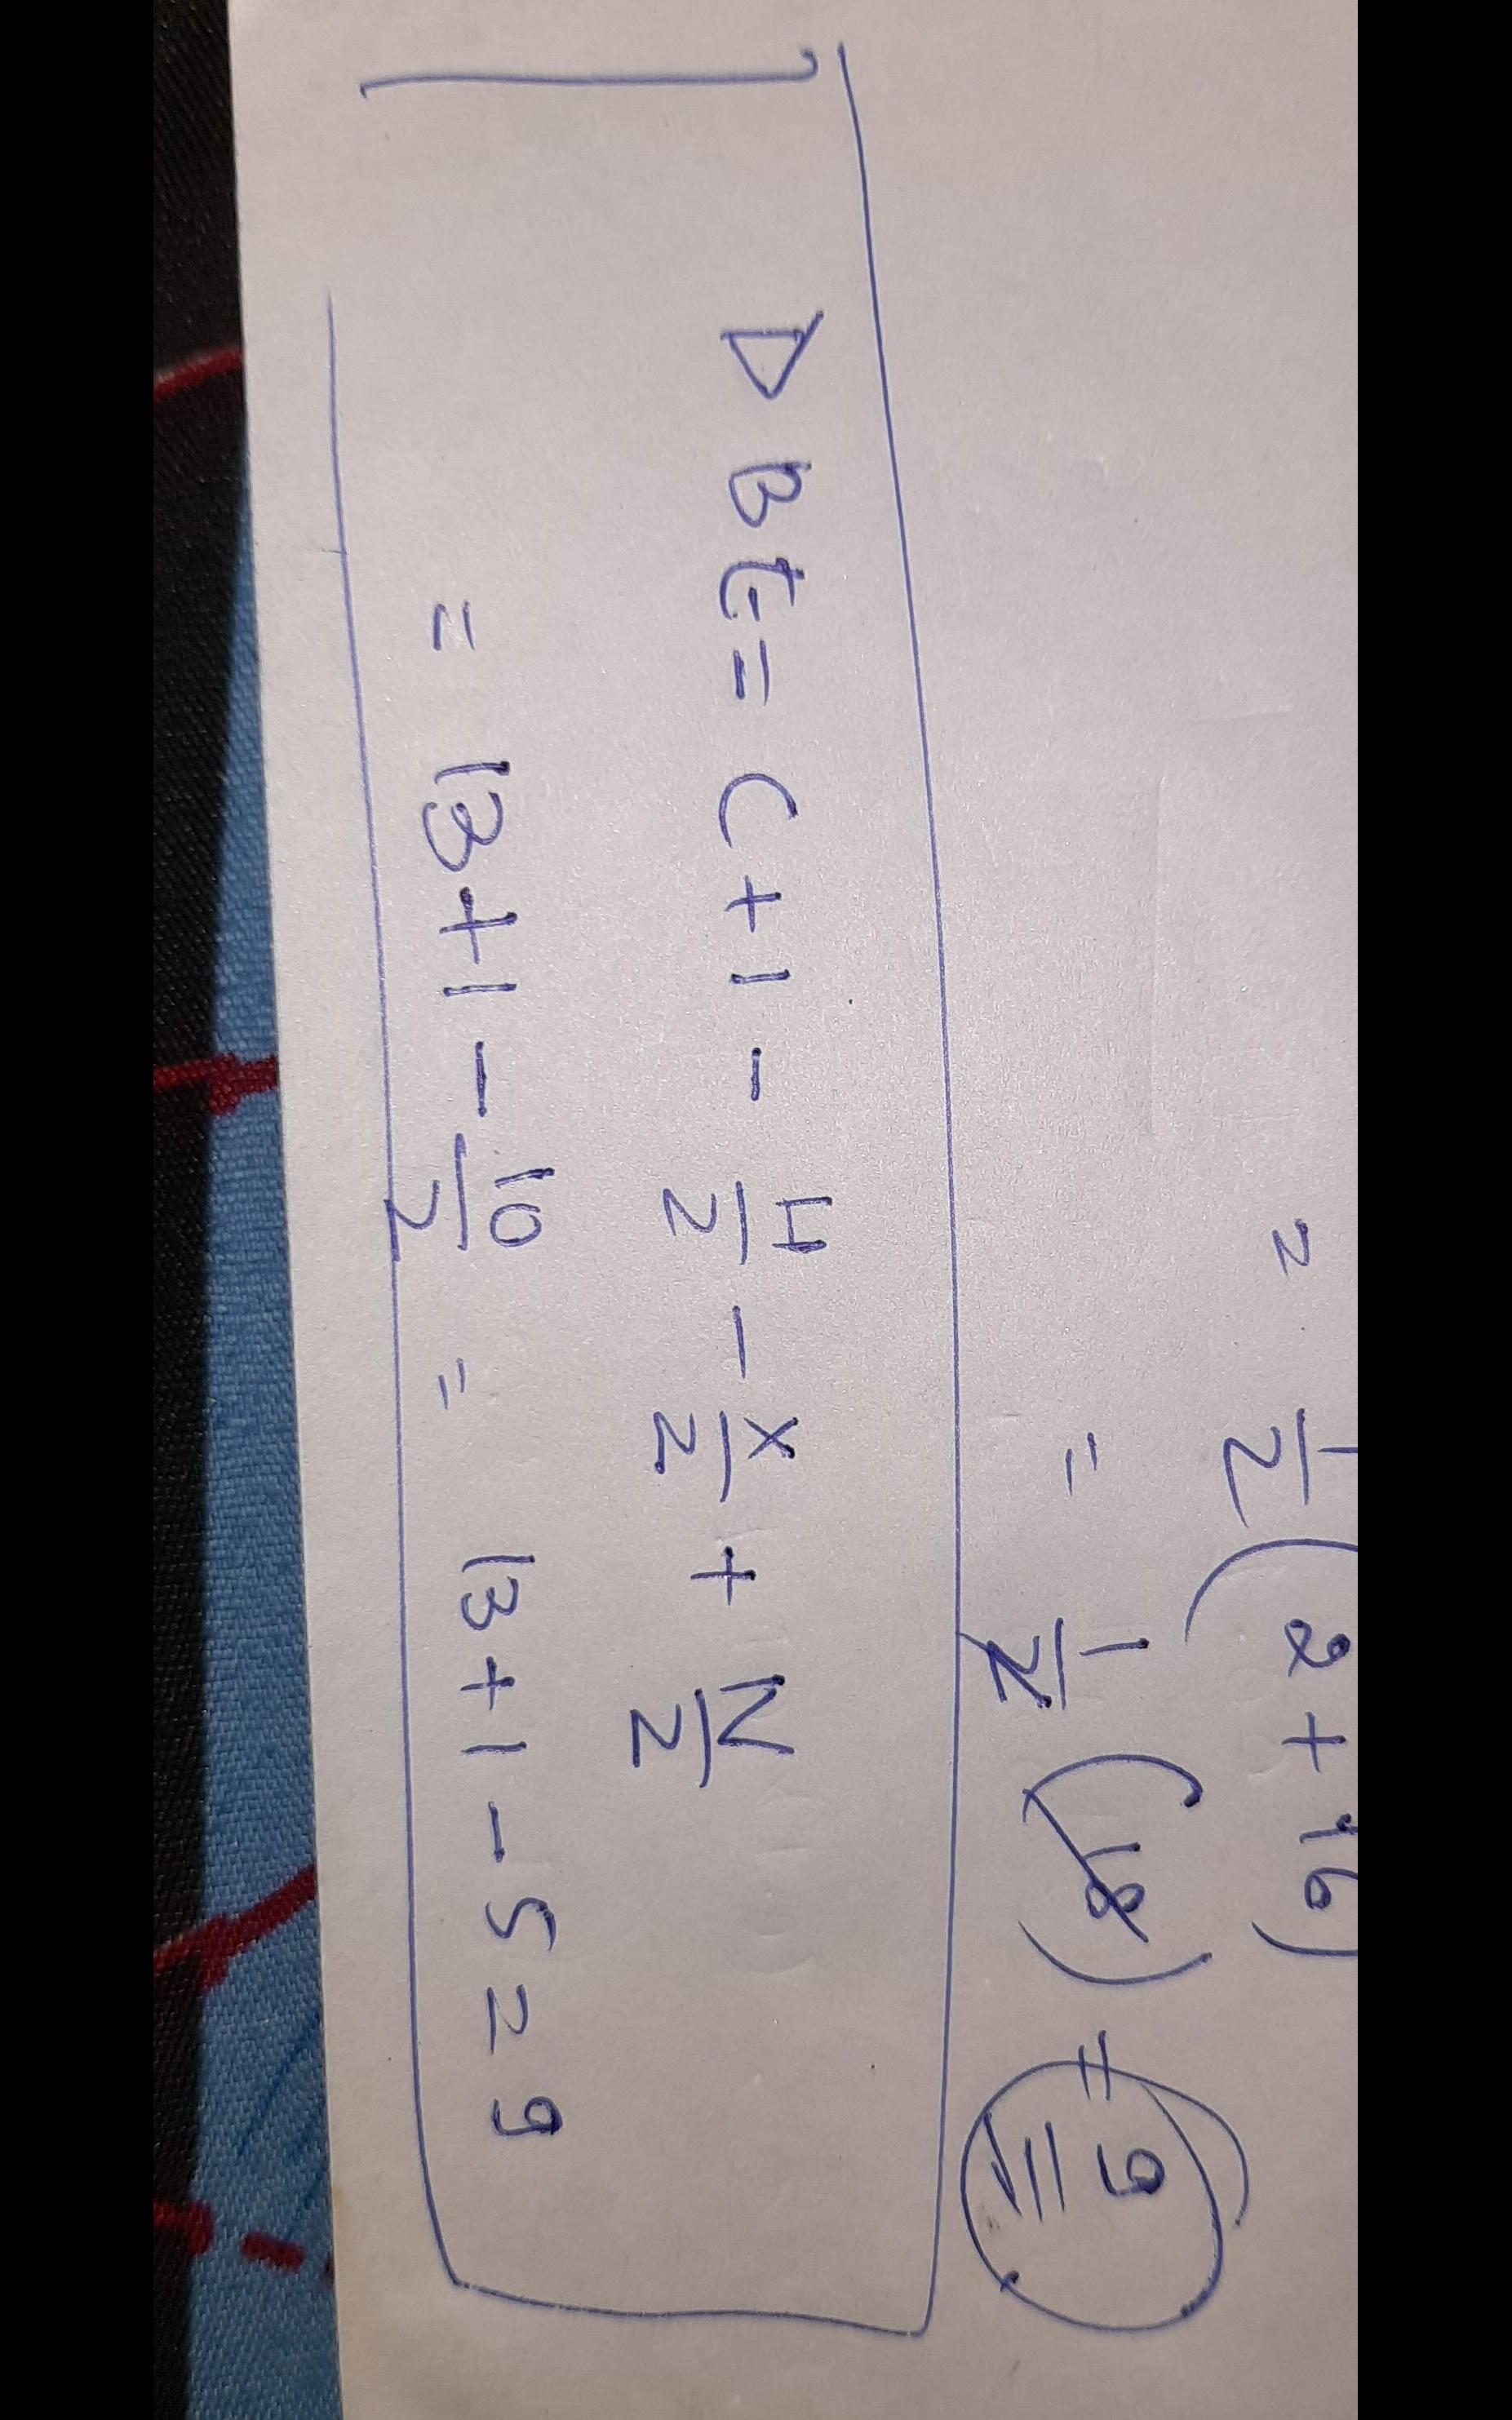 = 1/2 (2 + 16)
= 1/2 (18) = 9
D B E = C + 1 - H/2 - X/2 + N/2
= 13 + 1 - 10/2 = 13 + 1 - 5 = 9